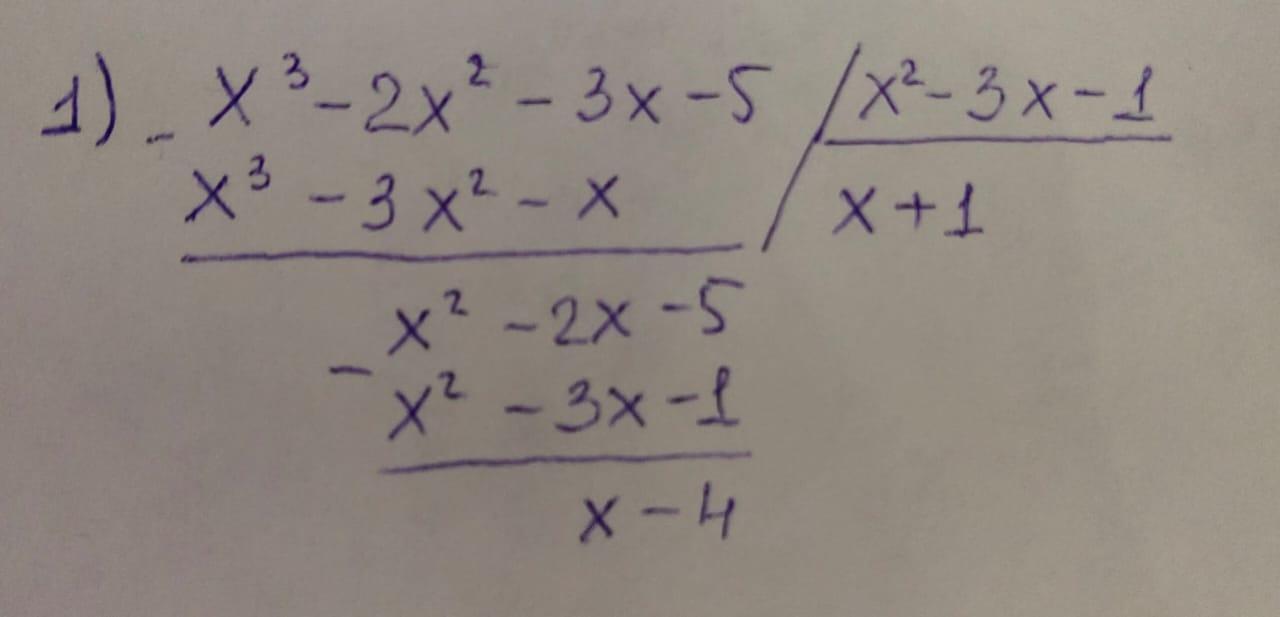 1) - x³ - 2x² - 3x - 5 / x² - 3x - 1
x³ - 3x² - x
x + 1
x² - 2x - 5
-
x² - 3x - 1
x - 4